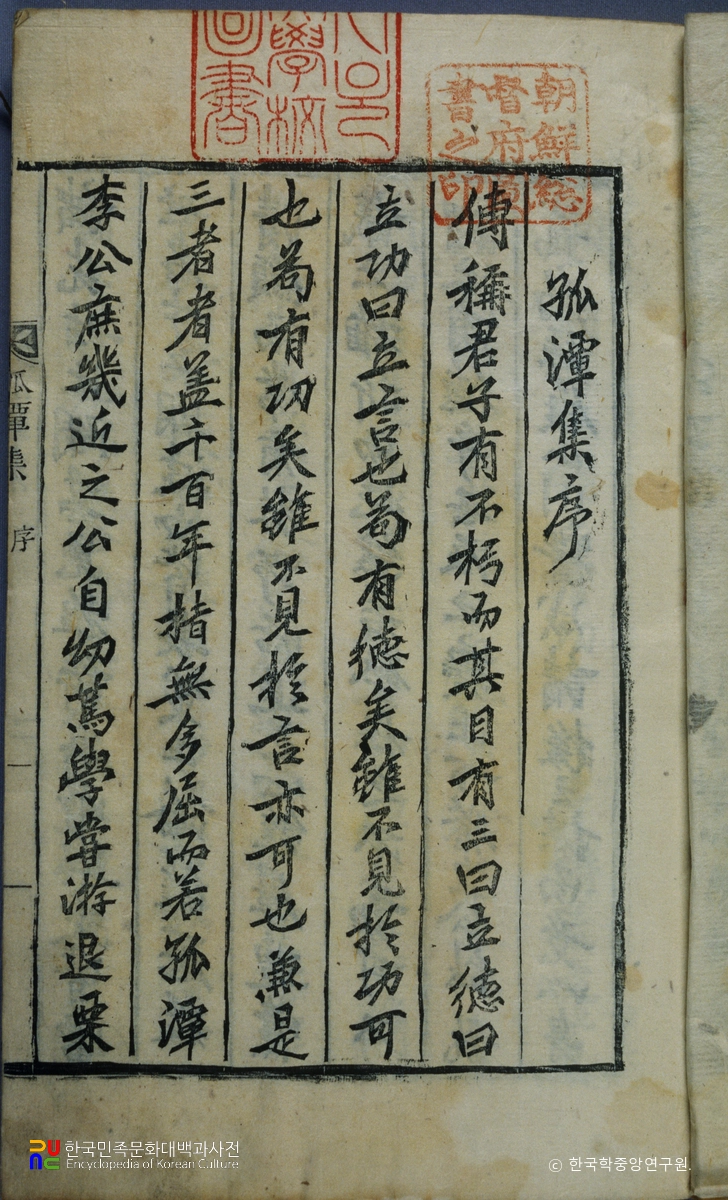 孤潭集序
傳稱君子有不朽而其目有三曰立德曰
立功曰立言也苟有德矣雖不見於功可
也苟有功矣雖不見於言亦可也兼是
三者者盖千百年指無多屈而若孤潭
李公庶幾近之公自幼篤學嘗游退栗
孤潭集 序 一
朝鮮總
督府圖
書之印
學校
圖書
한국민족문화대백과사전
Encyclopedia of Korean Culture
ⓒ 한국학중앙연구원.